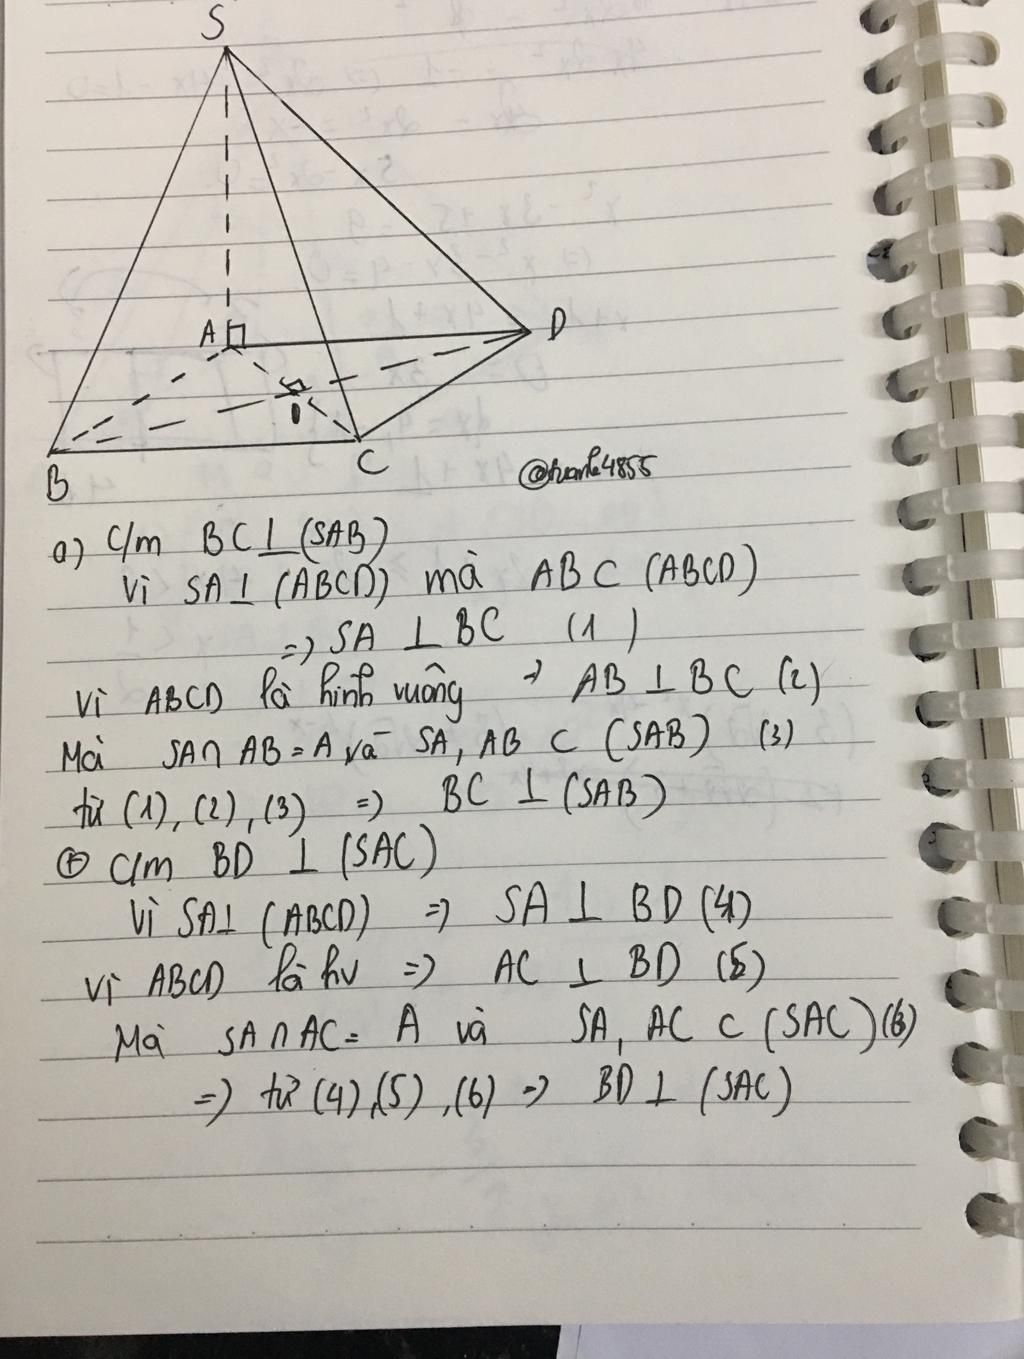 S
A
D
B
C
@tuanh4855
a) C/m BC ⊥ (SAB)
Vì SA ⊥ (ABCD) mà AB ⊂ (ABCD)
=> SA ⊥ BC (1)
Vì ABCD là hình vuông → AB ⊥ BC (2)
Mà SA ∩ AB = A và SA, AB ⊂ (SAB) (3)
từ (1), (2), (3) => BC ⊥ (SAB)
⊕ C/m BD ⊥ (SAC)
Vì SA ⊥ (ABCD) => SA ⊥ BD (4)
Vì ABCD là hv => AC ⊥ BD (5)
Mà SA ∩ AC = A và SA, AC ⊂ (SAC) (6)
=> từ (4), (5), (6) => BD ⊥ (SAC)